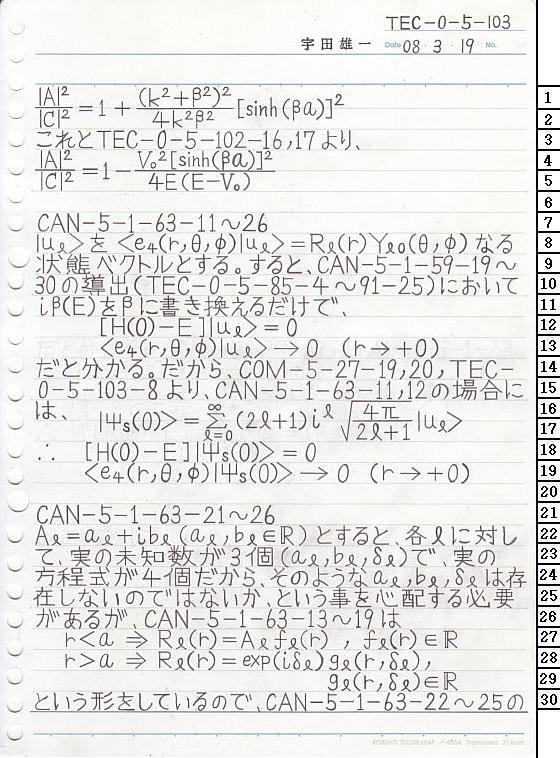 TEC-0-5-103
宇田雄一 Date 08・3・19 No.
|A|²/|C|² = 1 + (k²+β²)²/4k²β² [sinh(βa)]²
これとTEC-0-5-102-16,17より、
|A|²/|C|² = 1 - V₀²[sinh(βa)]²/4E(E-V₀)
CAN-5-1-63-11〜26
|uℓ>を<e₄(r,θ,φ)|uℓ>=Rℓ(r)Yℓ₀(θ,φ)なる
状態ベクトルとする。すると、CAN-5-1-59-19〜
30の導出(TEC-0-5-85-4〜91-25)において
iβ(E)をβに書き換えるだけで、
[H(0)-E]|uℓ>=0
<e₄(r,θ,φ)|uℓ>→0 (r→+0)
だと分かる。だから、COM-5-27-19,20,TEC-
0-5-103-8より、CAN-5-1-63-11,12の場合に
は、 |Ψs(0)>=∑_{ℓ=0}^{∞}(2ℓ+1)i^ℓ √(4π/(2ℓ+1))|uℓ>
∴ [H(0)-E]|Ψs(0)>=0
<e₄(r,θ,φ)|Ψs(0)>→0 (r→+0)
CAN-5-1-63-21〜26
Aℓ=aℓ+ibℓ(aℓ,bℓ∈ℝ)とすると、各ℓに対し
て、実の未知数が3個(aℓ,bℓ,δℓ)で、実の
方程式が4個だから、そのようなaℓ,bℓ,δℓは存
在しないのではないか、という事を心配する必要
があるが、CAN-5-1-63-13〜19は
r<a ⇒ Rℓ(r)=Aℓfℓ(r) , fℓ(r)∈ℝ
r>a ⇒ Rℓ(r)=exp(iδℓ)gℓ(r,δℓ),
gℓ(r,δℓ)∈ℝ
という形をしているので、CAN-5-1-63-22〜25の
1
2
3
4
5
6
7
8
9
10
11
12
13
14
15
16
17
18
19
20
21
22
23
24
25
26
27
28
29
30